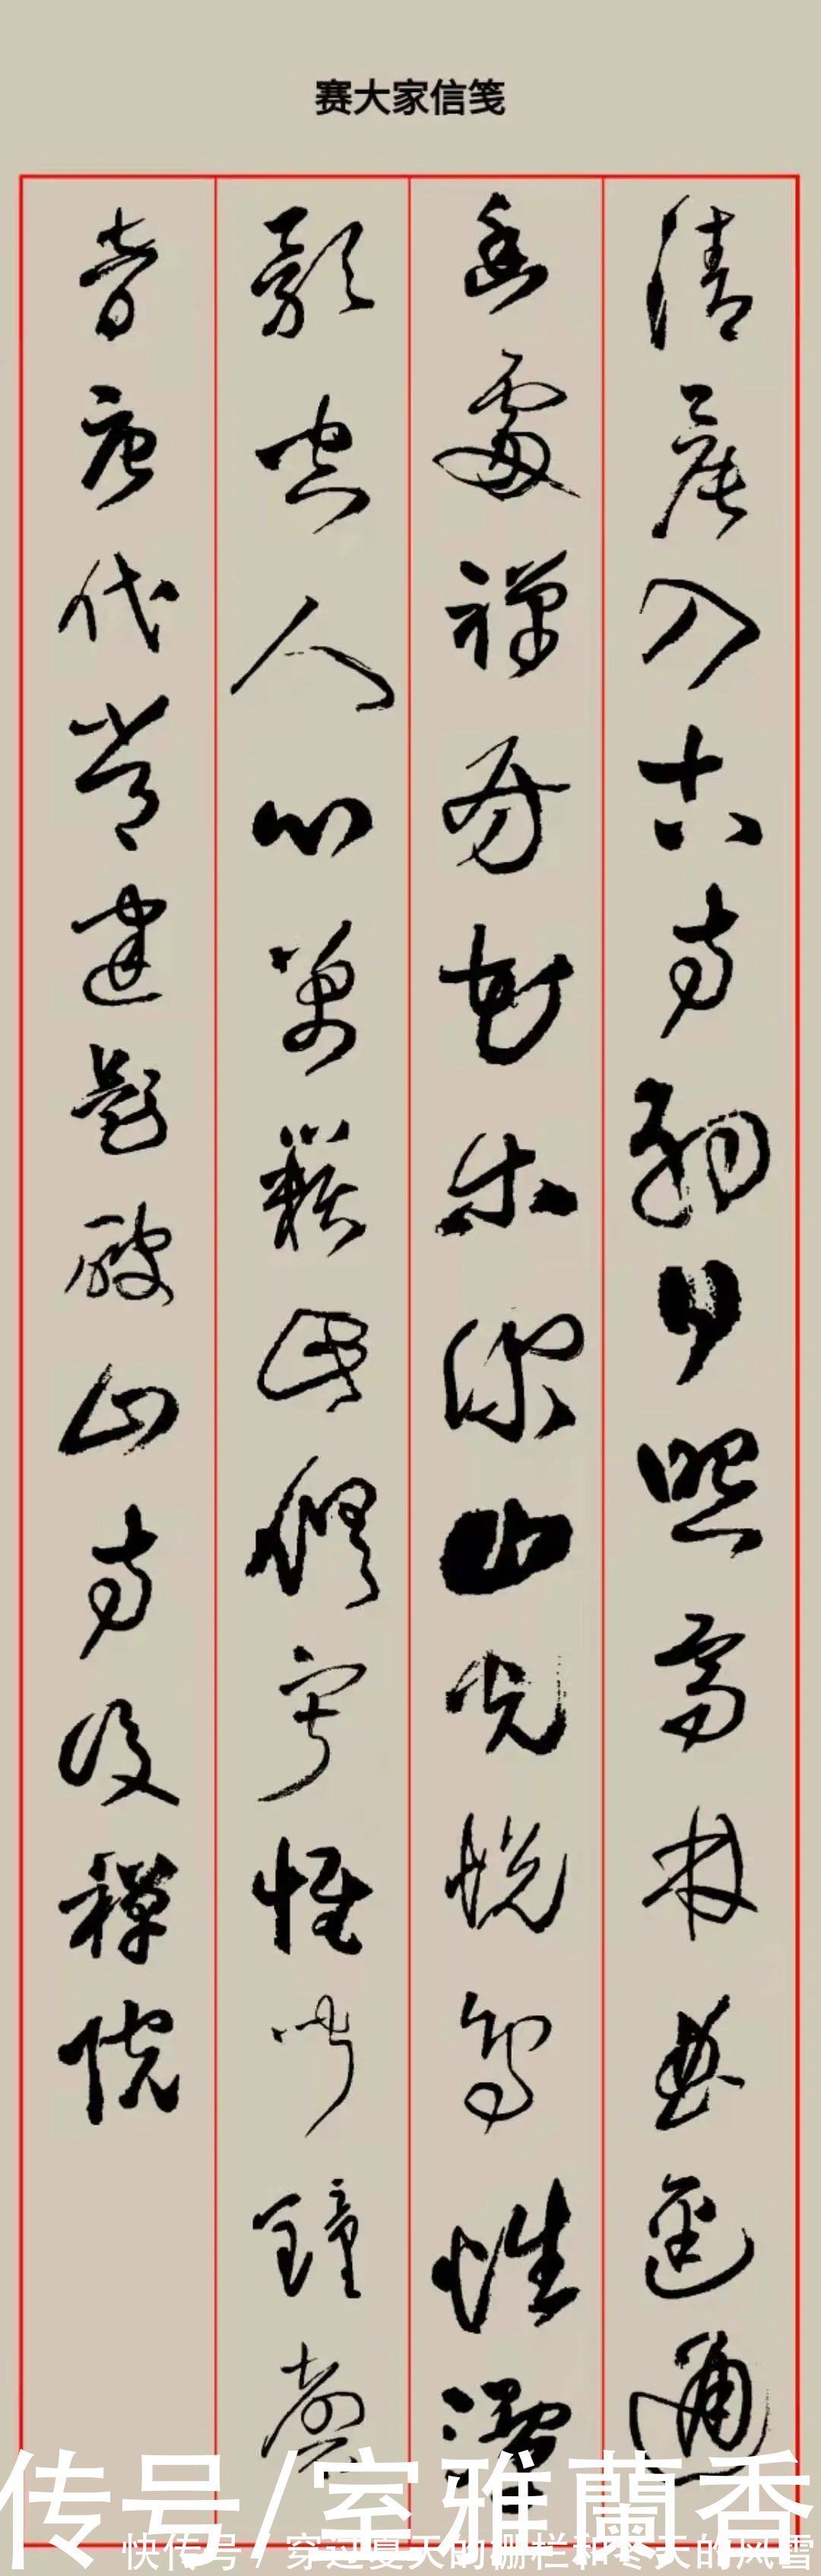 赛大家信笺
清晨入古寺初日照高林曲逕通
幽處禪房花木深山光悦鳥性潭
影空人心萬籟此俱寂惟聞鐘磬
音唐代常建題破山寺後禪院
传号/室雅蘭香
快传号 / 穿过夏天的栅栏和冬天的风雪